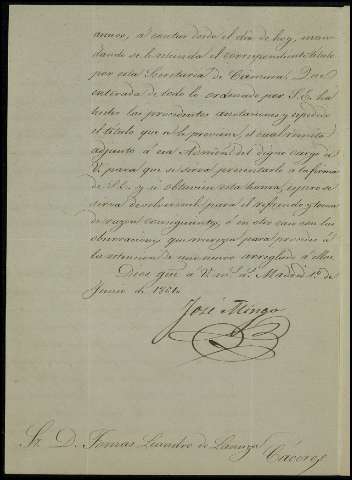 anuos, á contar desde el dia de hoy, man-
dando se le estienda el correspondiente titulo
por esta Secretaria de Camara. Que
enterada de todo lo ordenado por S. E. ha
hecho las precedentes anotaciones y espedido
el titulo que se le previene, el cual remito
adjunto á esa Admon. del digno cargo de
V. para que se sirva presentarle á la firma
de S. E. y si obtuviese esta honra, espero se
sirva devolvermele para el refrendo y toma
de razon consiguiente, ó en otro caso con las
observaciones que merezca para proceder á
la estension de uno nuevo arreglado á ellas.
Dios gue á V. ms. as. Madrid 1º de
Junio de
José Mingo
Sr. D. Tomas Leandro de Lanuza
Cáceres